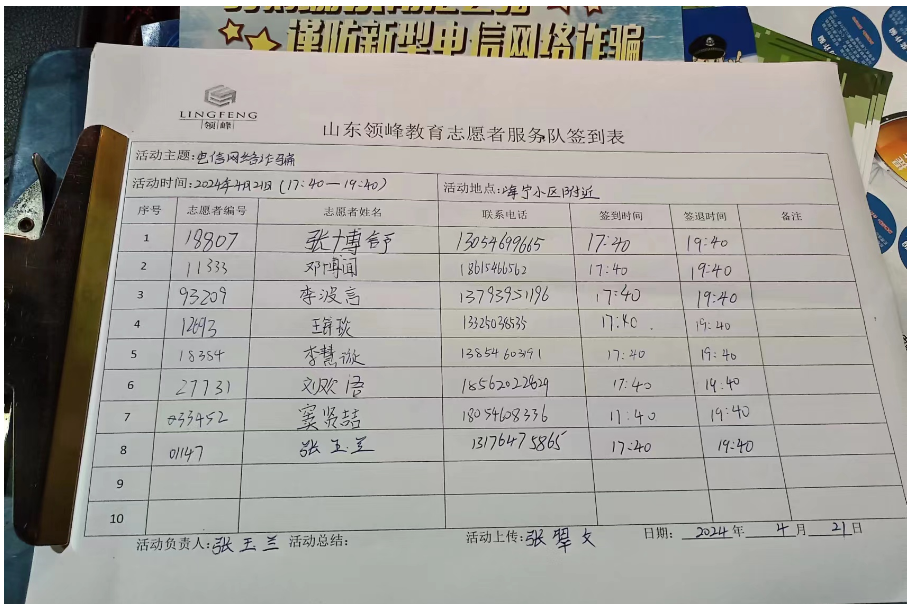 谨防新型电信网络诈骗
LINGFENG
领峰
山东领峰教育志愿者服务队签到表
活动主题:电信网络诈骗
活动时间:2024年4月21日(17:40—19:40) 活动地点:海宁小区附近
序号 志愿者编号 志愿者姓名 联系电话 签到时间 签退时间 备注
1 18807 张博舒 13054699665 17:40 19:40
2 11333 邓博闻 18615466562 17:40 19:40
3 93209 李波言 13793951196 17:40 19:40
4 12693 13325038535 17:40 19:40
5 18384 李慧璇 13854603191 17:40 19:40
6 27731 刘欢语 18562022829 17:40 19:40
7 033452 窦贤喆 18054608336 17:40 19:40
8 01147 张玉兰 13176475865 17:40 19:40
9
10
活动负责人:张玉兰 活动总结: 活动上传:张翠文 日期: 2024年 4月 21日